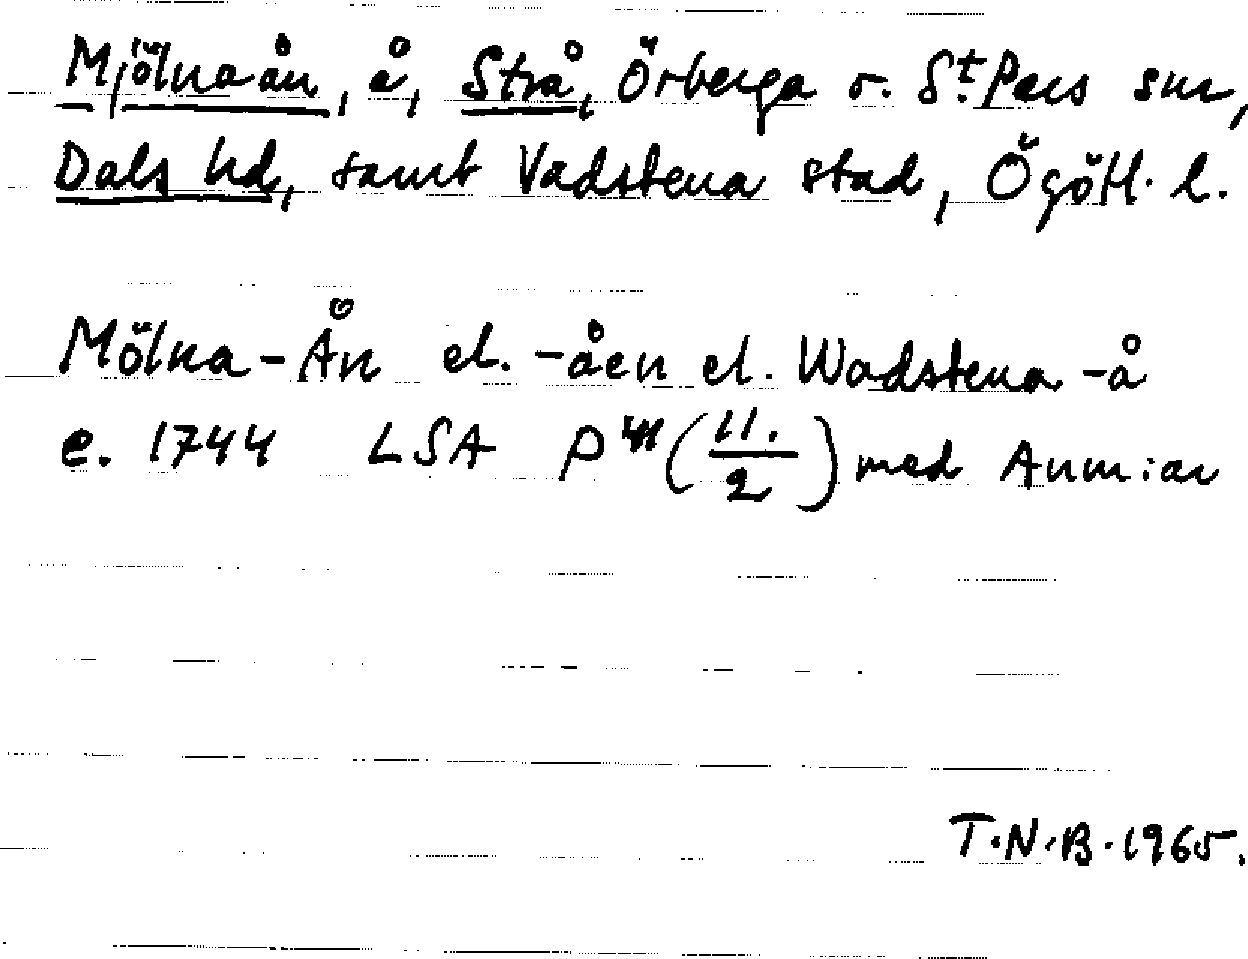 Mjölnaån, å, Strå, Örberga o. S:t Pers snr,
Dals hd, samt Vadstena stad, Ögötl. l.
Mölna-Ån el. -åen el. Wadstena -å
e. 1744 LSA P (11./2) med Anm:ar
T.N.B. 1965.